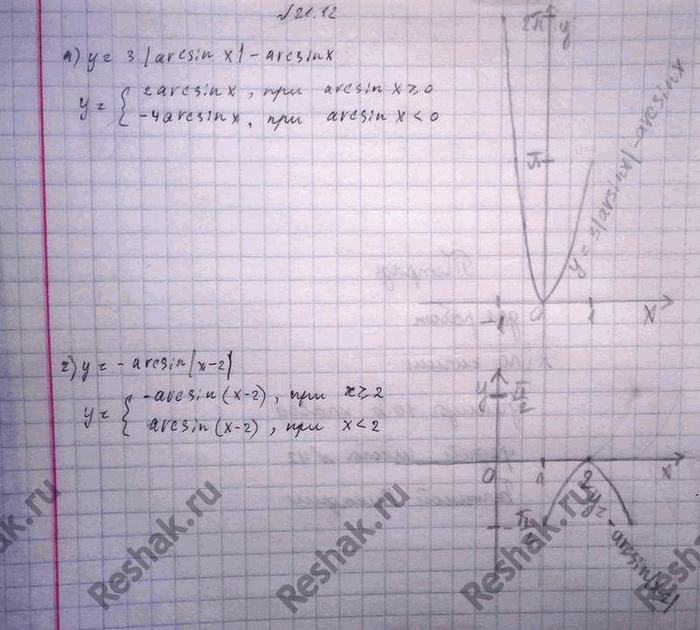 №21.12
а) y = 3|arcsin x| - arcsinx
y = { 2arcsinx, при arcsin x ≥ 0
-4arcsinx, при arcsin x < 0
2π y
π
y = 3|arcsinx| - arcsinx
-1 0 1 x
г) y = - arcsin|x-2|
y = { -arcsin(x-2), при x ≥ 2
arcsin(x-2), при x < 2
y π/2
0 1 2 x
y = -arcsin|x-2|
Reshak.ru
Reshak.ru
Reshak.ru
Reshak.ru